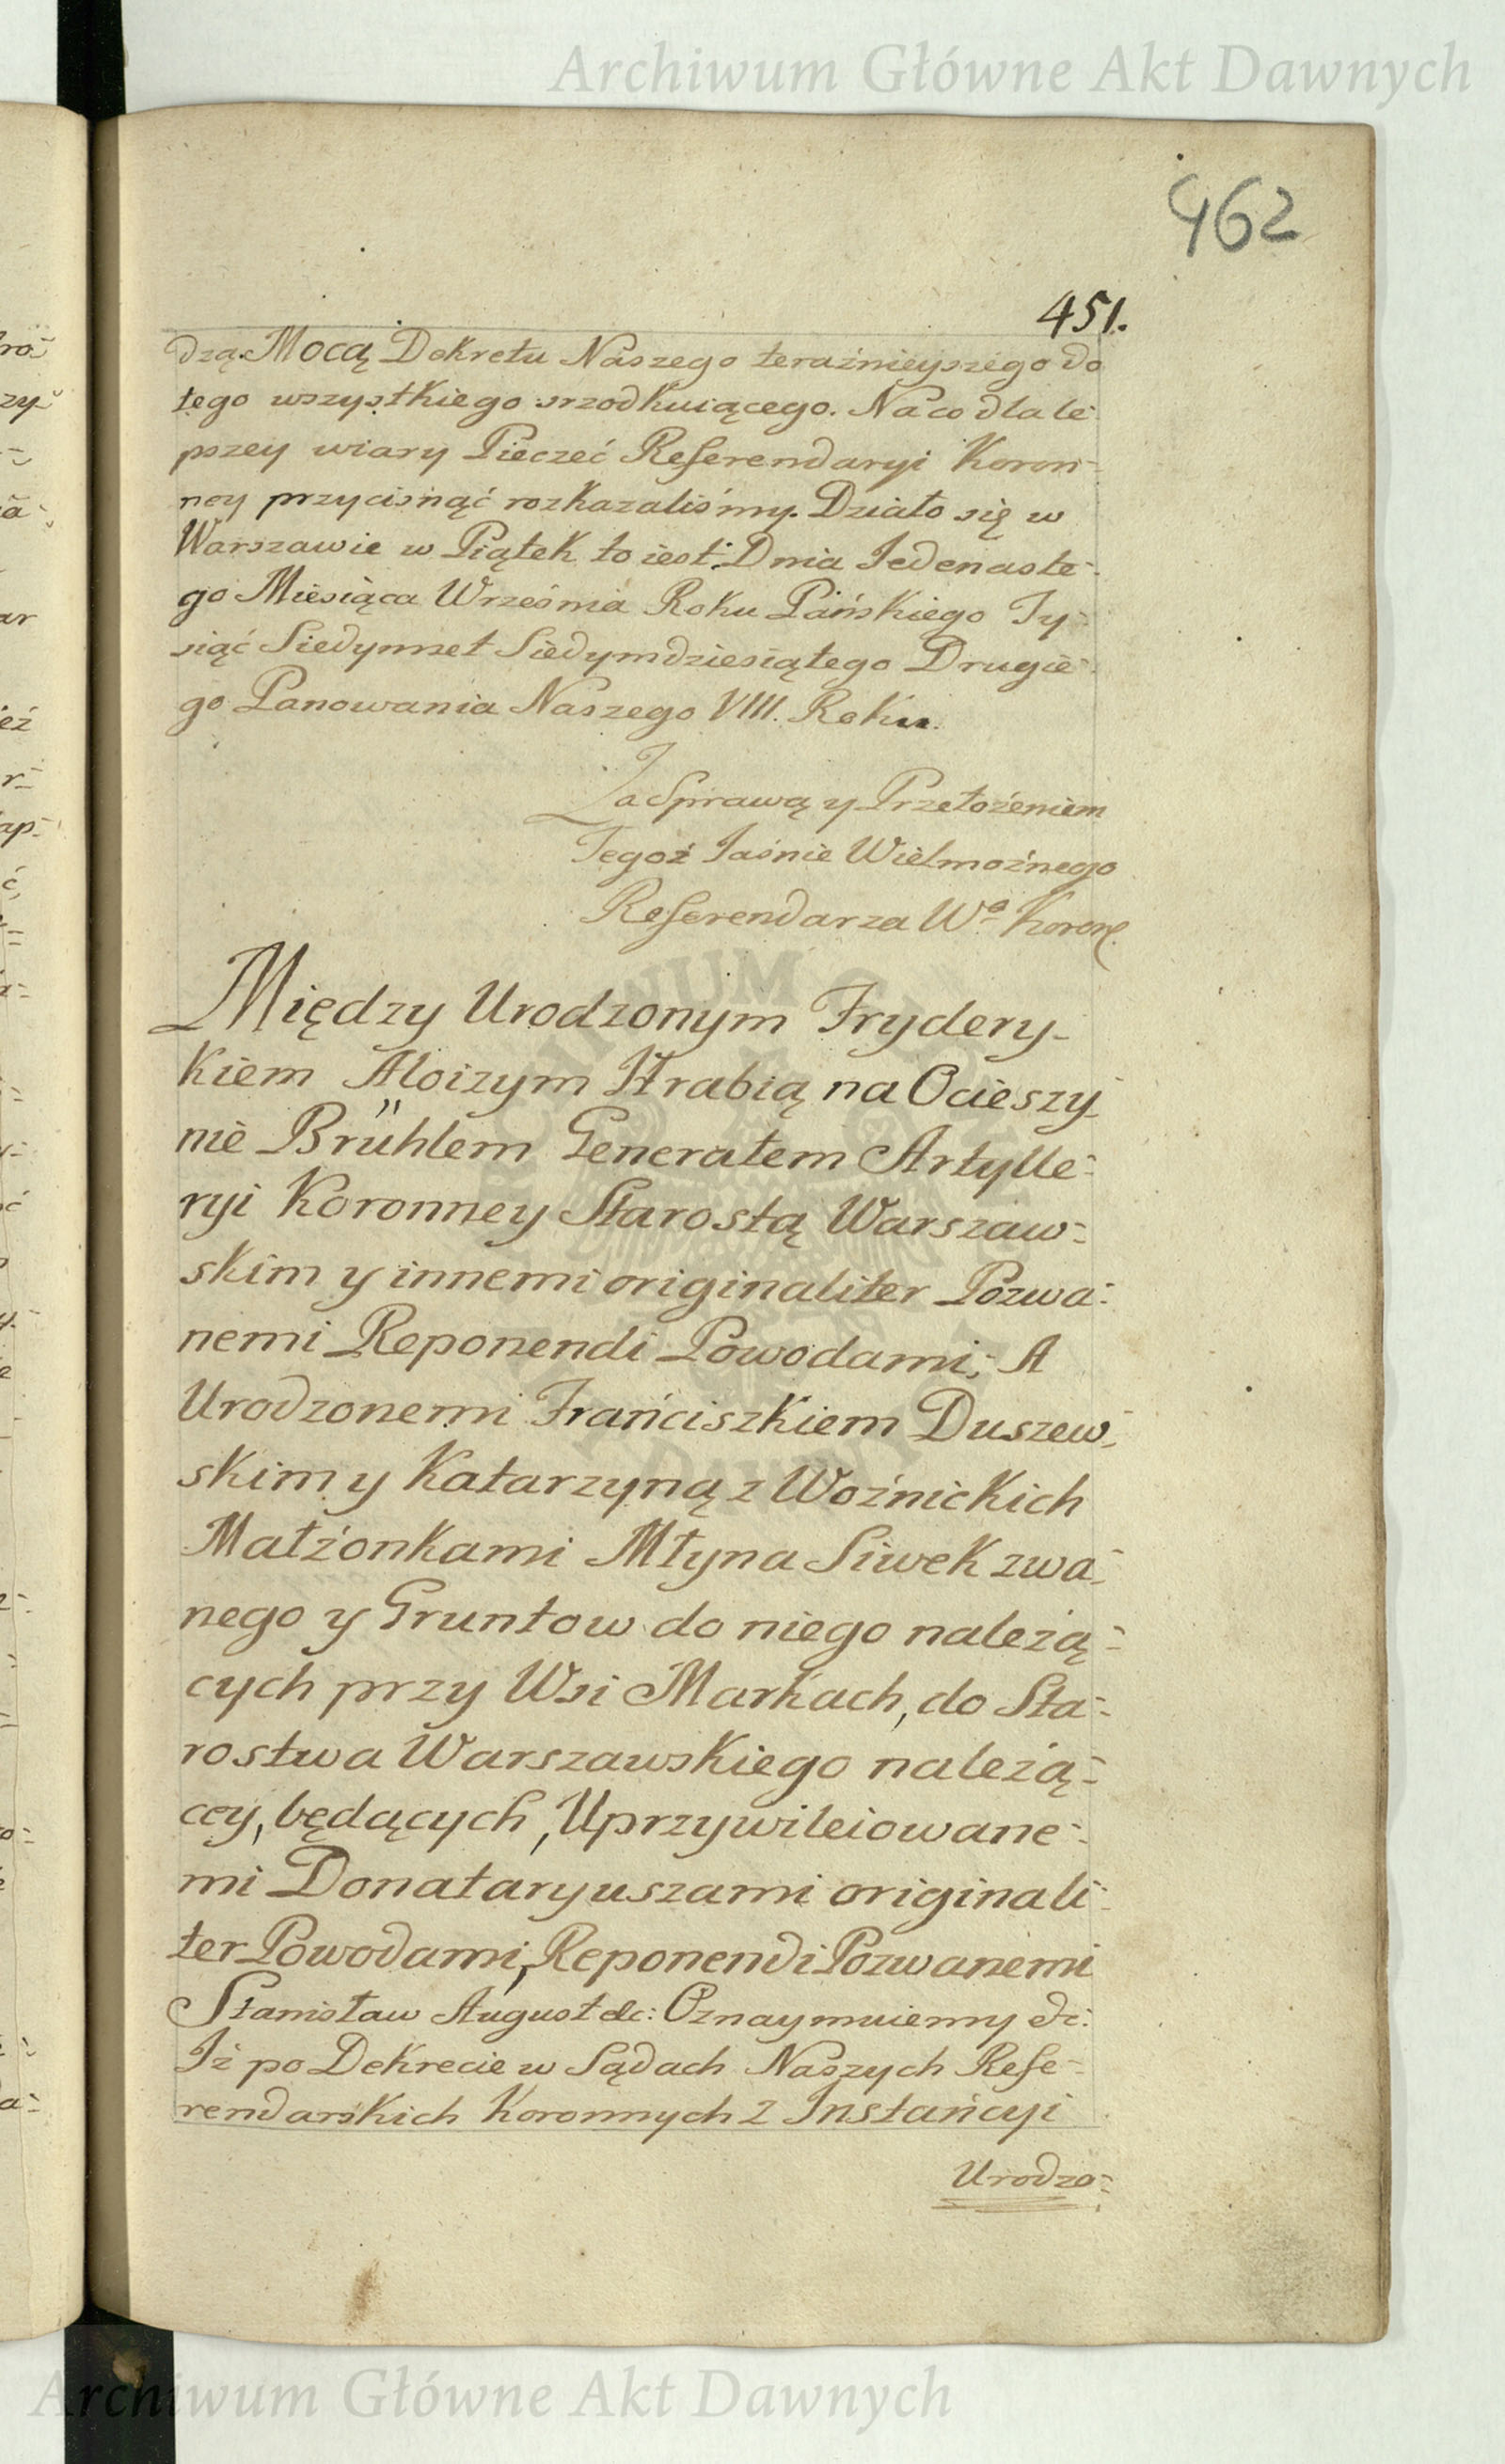 Archiwum Główne Akt Dawnych
462
451.
dzą. Mocą Dekretu Naszego teraźnieyszego do
tego wszystkiego srzodkuiącego. Na co dla le-
pszey wiary Pieczęć Referendaryi Koron-
ney przycisnąć rozkazaliśmy. Działo się w
Warszawie w Piątek to iest: Dnia Jedenaste-
go Miesiąca Września Roku Pańskiego Ty-
siąć Siedymset Siedymdziesiątego Drugie-
go Panowania Naszego VIII. Roku.
Za Sprawą y Przełożeniem
Tegoż Jaśnie Wielmożnego
Referendarza Wº Koron.
Między Urodzonym Frydery-
kiem Aloizym Hrabią na Ocieszy-
nie Brühlem Generałem Artylle-
ryi Koronney Starostą Warszaw-
skim y innemi originaliter Pozwa-
nemi Reponendi Powodami; A
Urodzonemi Frańciszkiem Duszew-
skim y Katarzyną z Woźnickich
Małżonkami Młyna Siwek zwa-
nego y Gruntow do niego należą-
cych przy Wsi Markach, do Sta-
rostwa Warszawskiego należą-
cey, będących, Uprzywileiowane-
mi Donataryuszami originali-
ter Powodami, Reponendi Pozwanemi
Stanisław August &c: Oznaymuiemy &c:
Iż po Dekrecie w Sądach Naszych Refe-
rendarskich Koronnych z Instańcyi
Urodzo-
Archiwum Główne Akt Dawnych